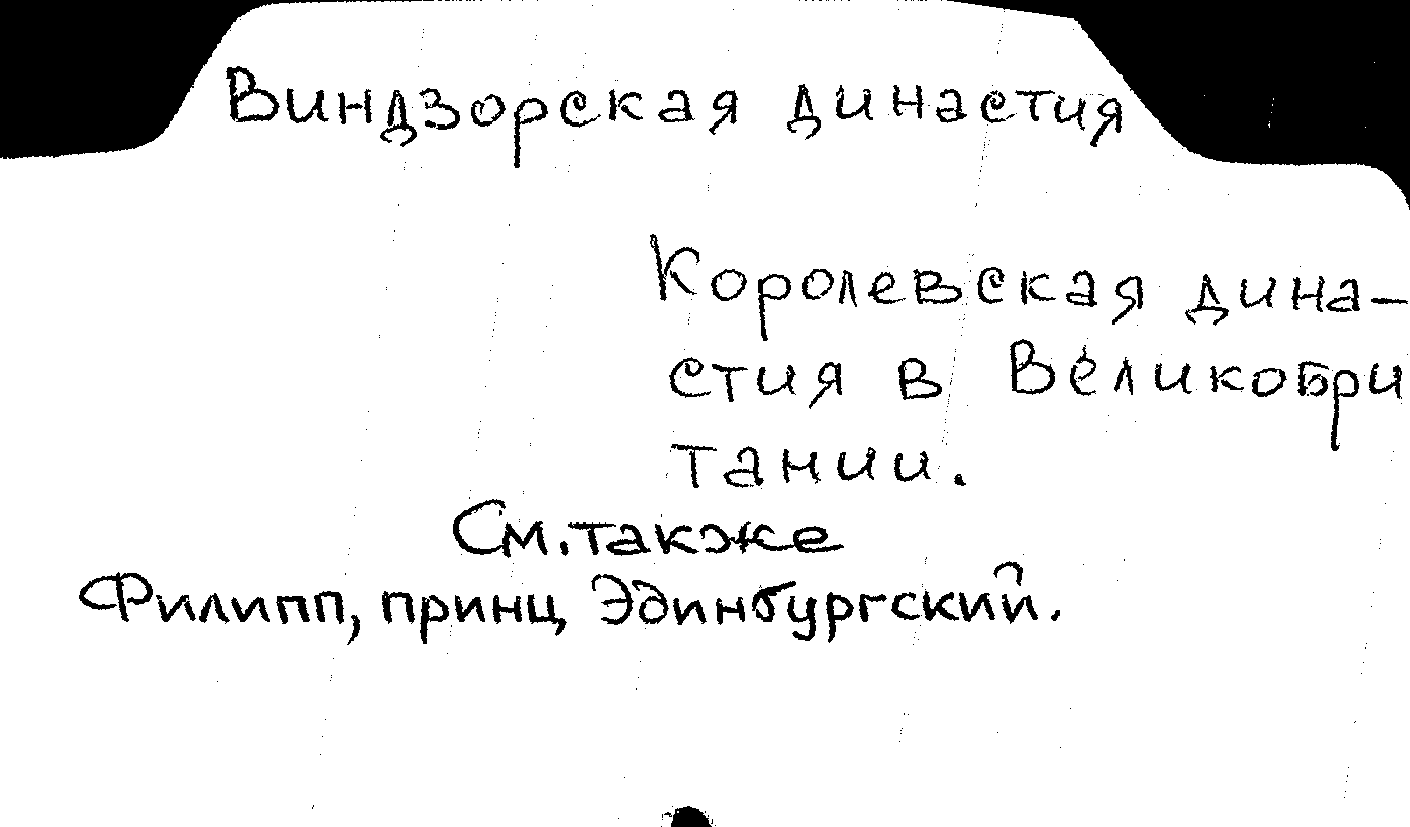 Виндзорская династия
Королевская дина-
стия в Великобри
тании.
См. также
Филипп, принц Эдинбургский.